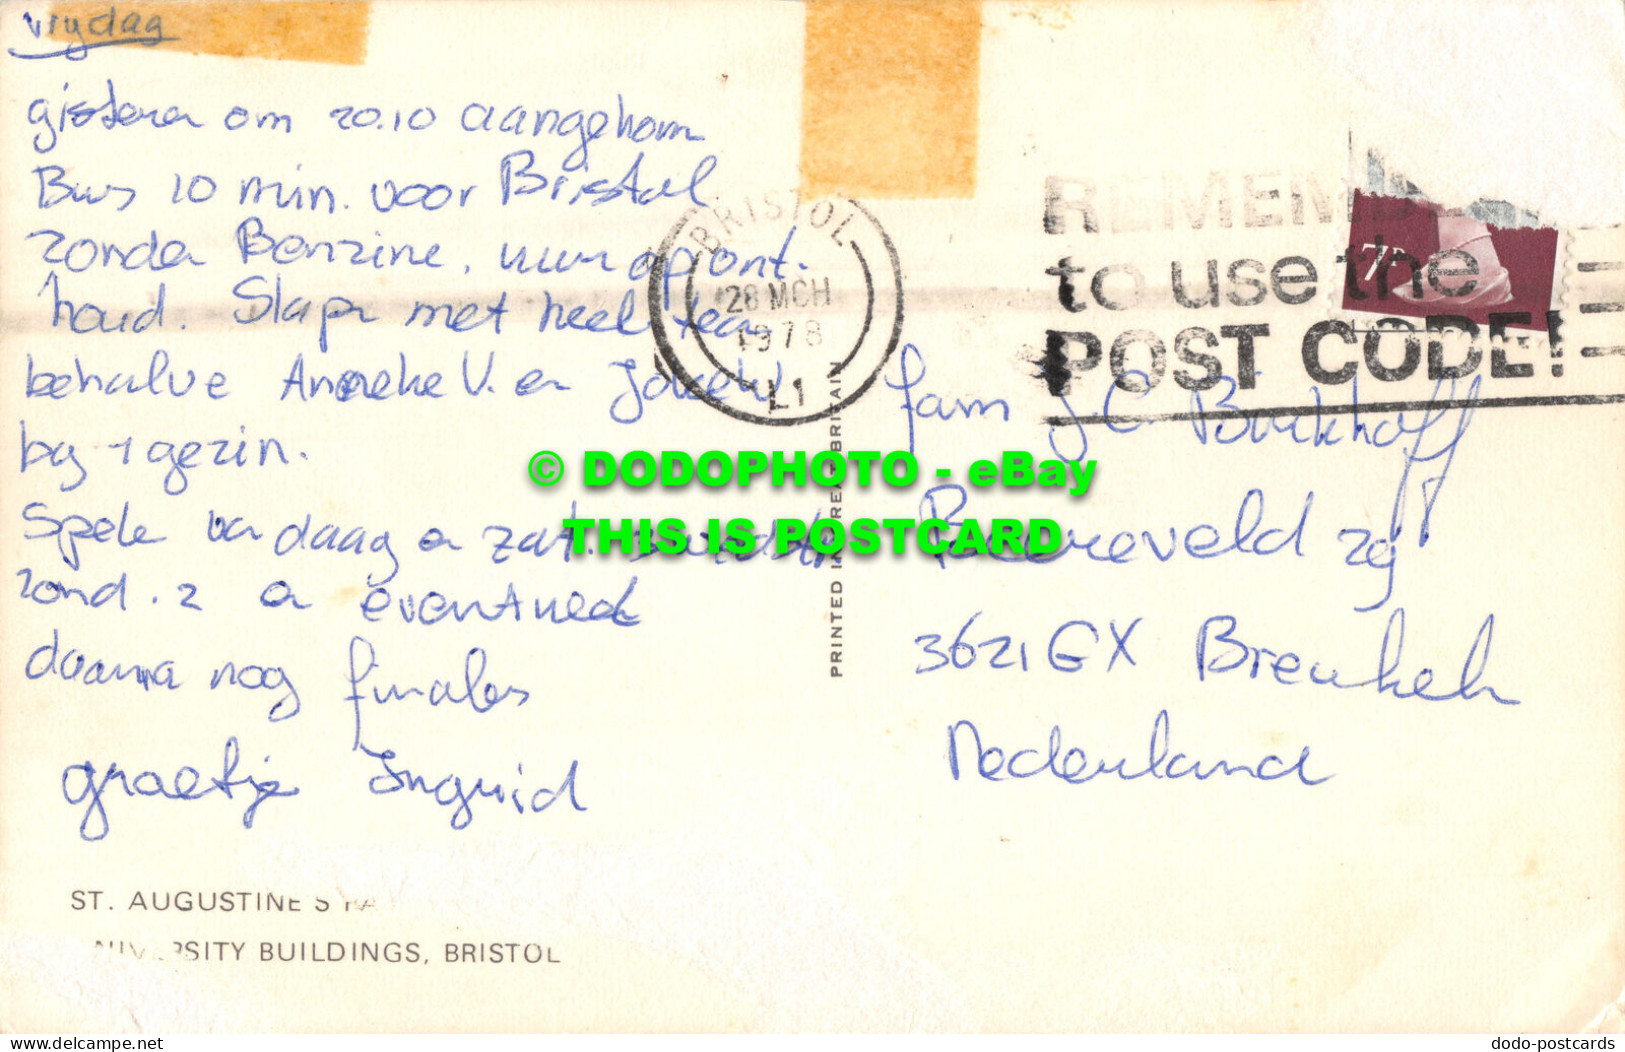 vrydag
gisteren om 20.10 aangekomen
Bus 10 min. voor Bristol
zonder Benzine, uur opont-
houd. Slapen met heel team
behalve Anneke V. en
by 1 gezin.
Spelen vandaag en zat.
zond. 2 en eventueel
daarna nog finales
groetje Ingrid
ST. AUGUSTINE'S
UNIVERSITY BUILDINGS, BRISTOL
PRINTED IN GREAT BRITAIN
BRISTOL
28 MCH
1978
L1
REMEMBER
to use the
POST CODE!
7P
fam J.C. Burkhoff
29
3621 GX Breukelen
Nederland
© DODOPHOTO - eBay
THIS IS POSTCARD
© dodo-postcards & delcampe.net
dodo-postcards